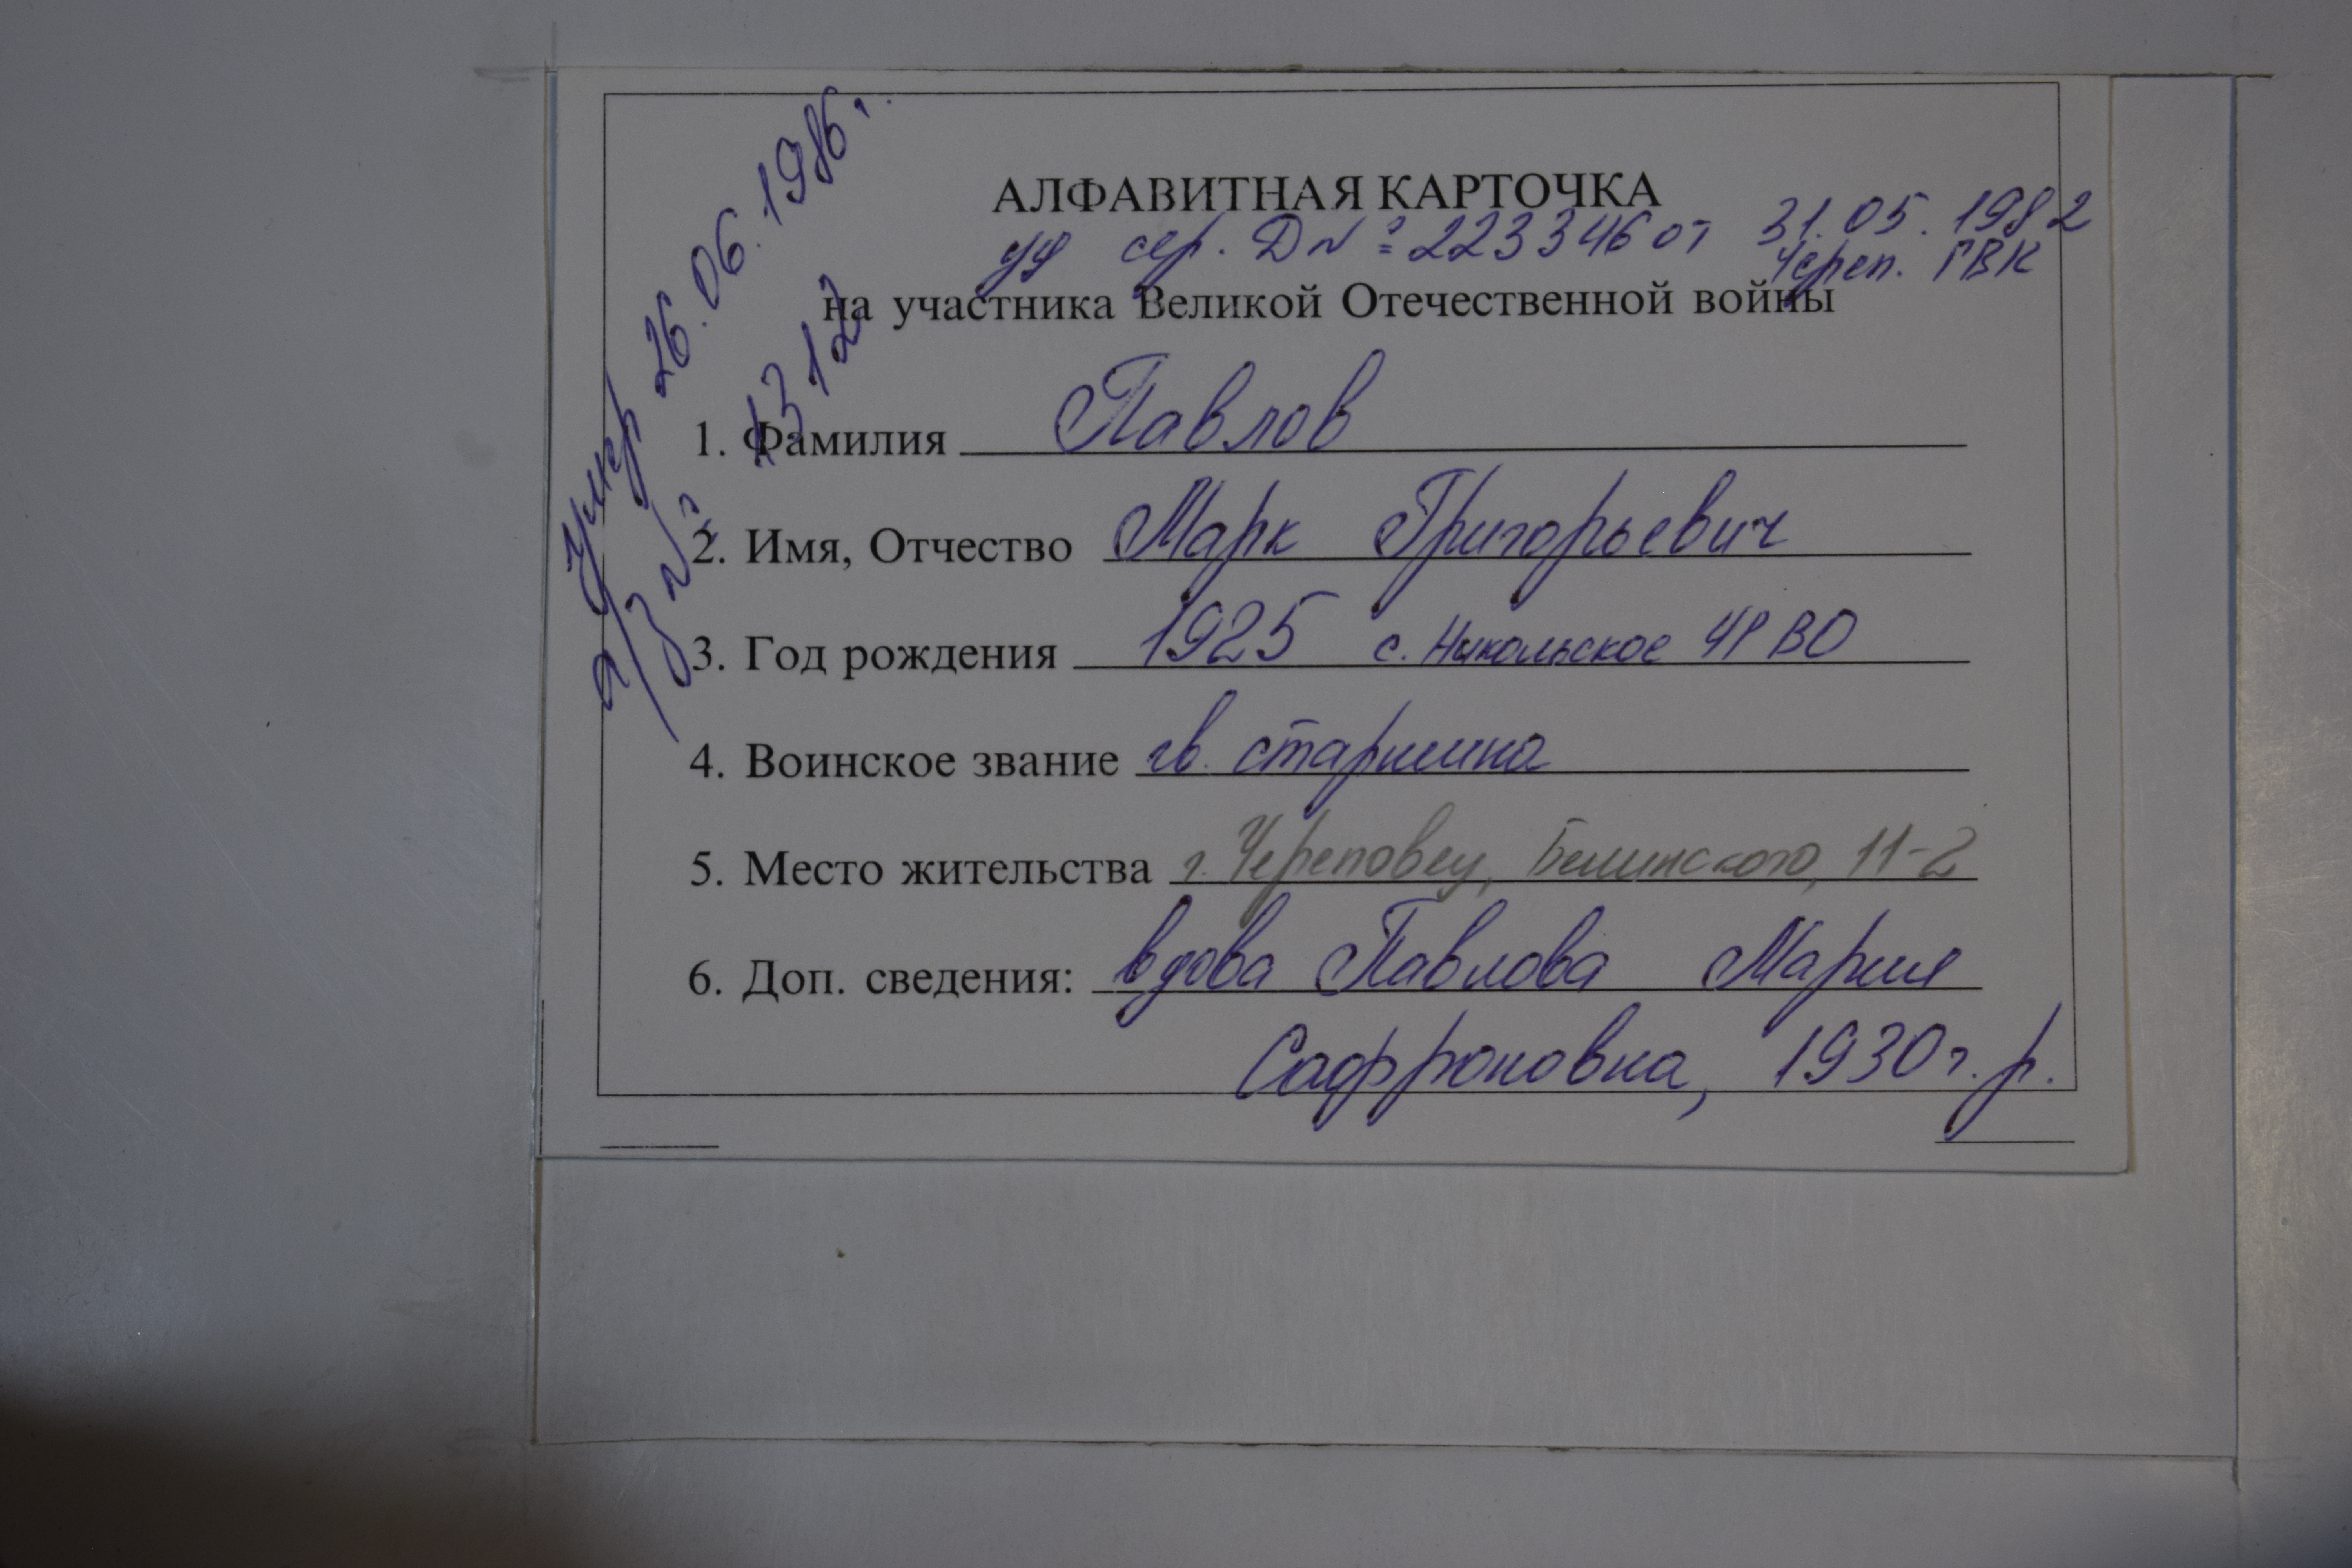 умер 26.06.1986г.
а/з № 1312
АЛФАВИТНАЯ КАРТОЧКА
уд сер. Д № 223346 от 31.05.1982
Череп. ГВК
на участника Великой Отечественной войны
1. Фамилия Павлов
2. Имя, Отчество Марк Григорьевич
3. Год рождения 1925 с. Никольское ЧР ВО
4. Воинское звание гв. старшина
5. Место жительства г. Череповец, Белинского, 11-2
6. Доп. сведения: вдова Павлова Мария
Сафроновна, 1930 г.р.